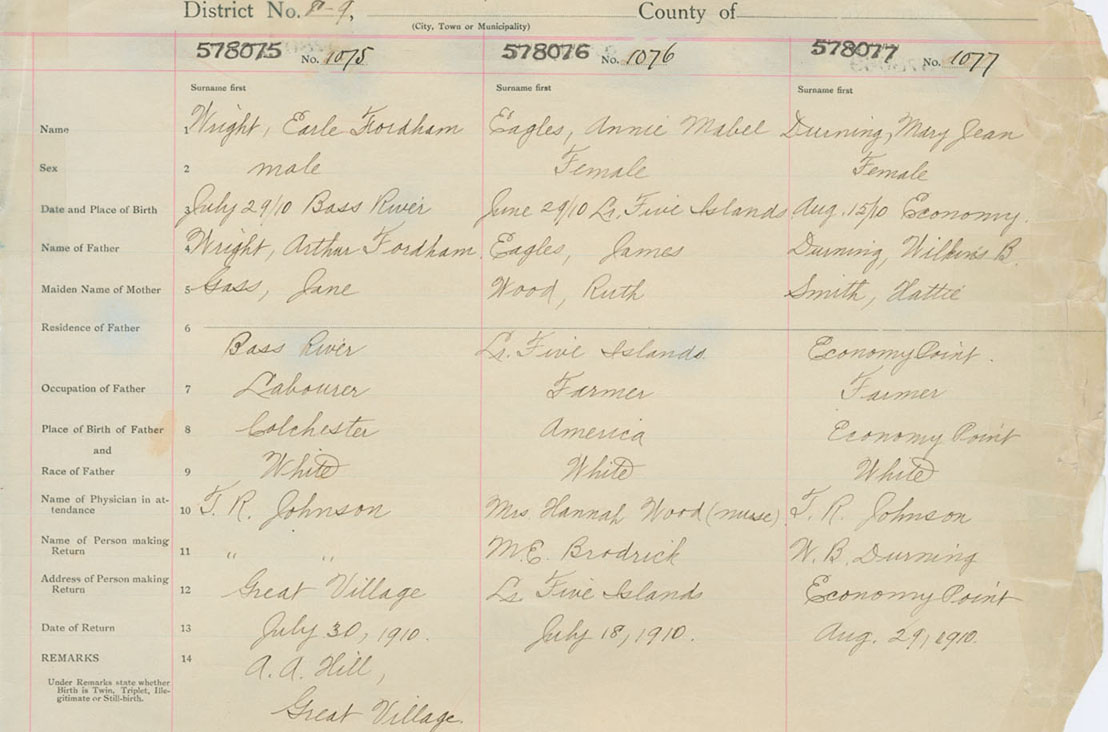 District No. 8-9, County of
(City, Town or Municipality)
578075 No. 1075 578076 No. 1076 578077 No. 1077
Surname first Surname first Surname first
Name 1 Wright, Earle Fordham Eagles, Annie Mabel Durning, Mary Jean
Sex 2 male Female Female
Date and Place of Birth 3 July 29/10 Bass River June 29/10 Lr. Five Islands Aug. 15/10 Economy.
Name of Father 4 Wright, Arthur Fordham Eagles, James Durning, Wilkins B.
Maiden Name of Mother 5 Gass, Jane Wood, Ruth Smith, Hattie
Residence of Father 6
Bass River Lr. Five Islands Economy Point.
Occupation of Father 7 Labourer Farmer Farmer
Place of Birth of Father 8 Colchester America Economy Point
and
Race of Father 9 White White White
Name of Physician in at-
tendance 10 T. R. Johnson Mrs Hannah Wood (nurse) T. R. Johnson
Name of Person making
Return 11 " " M.E. Brodrick W. B. Durning
Address of Person making
Return 12 Great Village Lr. Five Islands Economy Point
Date of Return 13 July 30, 1910. July 18, 1910. Aug. 29, 1910.
REMARKS 14 A. A. Hill,
Under Remarks state whether
Birth is Twin, Triplet, Ille-
gitimate or Still-birth.
Great Village.